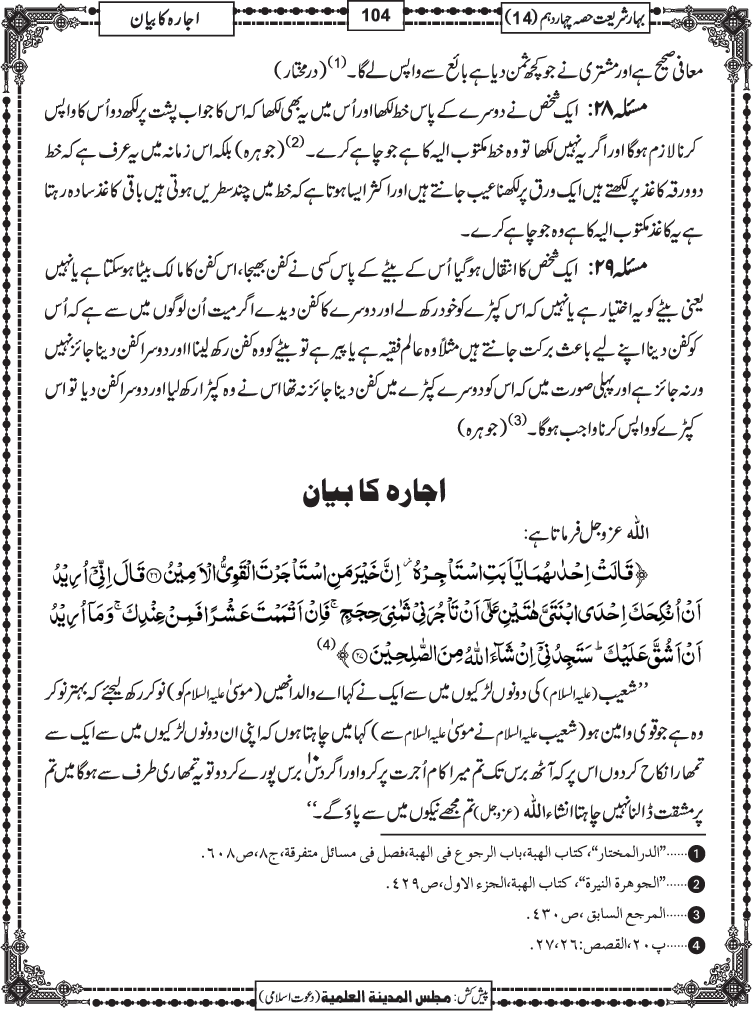 بہار شریعت حصہ چہاردہم (14)
104
اجارہ کا بیان
معافی صحیح ہے اور مشتری نے جو کچھ ثمن دیا ہے بائع سے واپس لے گا۔(1) (درمختار)
مسئلہ ۲۸: ایک شخص نے دوسرے کے پاس خط لکھا اور اُس میں یہ بھی لکھا کہ اس کا جواب پشت پر لکھ دو اُس کا واپس
کرنا لازم ہوگا اور اگر یہ نہیں لکھا تو وہ خط مکتوب الیہ کا ہے جو چاہے کرے۔(2) (جوہرہ) بلکہ اس زمانہ میں یہ عرف ہے کہ خط
دوورقہ کاغذ پر لکھتے ہیں ایک ورق پر لکھنا عیب جانتے ہیں اور اکثر ایسا ہوتا ہے کہ خط میں چند سطریں ہوتی ہیں باقی کاغذ سادہ رہتا
ہے یہ کاغذ مکتوب الیہ کا ہے وہ جو چاہے کرے۔
مسئلہ ۲۹: ایک شخص کا انتقال ہوگیا اُس کے بیٹے کے پاس کسی نے کفن بھیجا، اس کفن کا مالک بیٹا ہوسکتا ہے یا نہیں
یعنی بیٹے کو یہ اختیار ہے یا نہیں کہ اس کپڑے کو خود رکھ لے اور دوسرے کا کفن دیدے اگر میت اُن لوگوں میں سے ہے کہ اُس
کو کفن دینا اپنے لیے باعث برکت جانتے ہیں مثلاً وہ عالم فقیہ ہے یا پیر ہے تو بیٹے کو وہ کفن رکھ لینا ااور دوسرا کفن دینا جائز نہیں
ورنہ جائز ہے اور پہلی صورت میں کہ اس کو دوسرے کپڑے میں کفن دینا جائز نہ تھا اس نے وہ کپڑا رکھ لیا اور دوسرا کفن دیا تو اس
کپڑے کو واپس کرنا واجب ہوگا۔(3) (جوہرہ)
اجارہ کا بیان
اللہ عزوجل فرماتا ہے:
﴿قَالَتْ اِحْدٰىهُمَا یٰۤاَبَتِ اسْتَاْجِرْهُ٘ اِنَّ خَیْرَ مَنِ اسْتَاْجَرْتَ الْقَوِیُّ الْاَمِیْنُ ﴿۲۶﴾ قَالَ اِنِّیْۤ اُرِیْدُ
اَنْ اُنْكِحَكَ اِحْدَى ابْنَتَیَّ هٰتَیْنِ عَلٰۤى اَنْ تَاْجُرَنِیْ ثَمٰنِیَ حِجَجٍۚ فَاِنْ اَتْمَمْتَ عَشْرًا فَمِنْ عِنْدِكَۚ وَ مَاۤ اُرِیْدُ
اَنْ اَشُقَّ عَلَیْكَؕ سَتَجِدُنِیْۤ اِنْ شَآءَ اللّٰهُ مِنَ الصّٰلِحِیْنَ ﴿۲۷﴾﴾(4)
”شعیب (علیہ السلام) کی دونوں لڑکیوں میں سے ایک نے کہا اے والد انھیں (موسیٰ علیہ السلام کو) نوکر رکھ لیجئے کہ بہتر نوکر
وہ ہے جو قوی و امین ہو (شعیب علیہ السلام نے موسیٰ علیہ السلام سے) کہا میں چاہتا ہوں کہ اپنی ان دونوں لڑکیوں میں سے ایک سے
تمھارا نکاح کردوں اس پر کہ آٹھ برس تک تم میرا کام اُجرت پر کرو اور اگر دس۱۰ برس پورے کردو تو یہ تمھاری طرف سے ہوگا میں تم
پر مشقت ڈالنا نہیں چاہتا انشاء اللہ (عزوجل) تم مجھے نیکوں میں سے پاؤ گے۔“
1 ......”الدرالمختار“، كتاب الهبة، باب الرجوع فى الهبة، فصل فى مسائل متفرقة، ج٨، ص٦٠٨.
2 ......”الجوهرة النيرة“، كتاب الهبة، الجزء الاول، ص٤٢٩.
3 ......المرجع السابق، ص٤٣٠.
4 ......پ٢٠، القصص: ٢٦، ٢٧.
پیش کش: مجلس المدینة العلمیة (دعوت اسلامی)